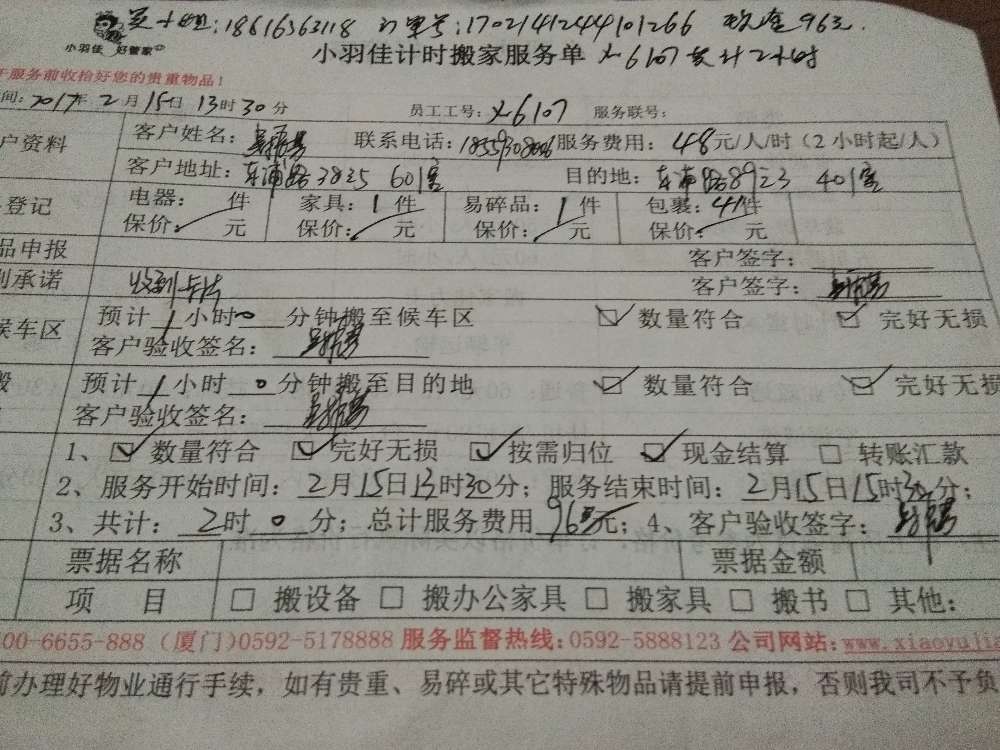 吴小姐:18616363118 订单号:17021412444101266 现金96元
小羽佳 好管家 小羽佳计时搬家服务单 X6107 共计2小时
于服务前收拾好您的贵重物品!
间:2017年2月15日13时30分 员工工号:X6107 服务联号:
户资料 客户姓名: 联系电话: 服务费用:48元/人/时(2小时起/人)
客户地址:东浦路38之5 601室 目的地:东浦路89之3 401室
登记 电器: 件 家具:1件 易碎品:1件 包裹:41件
保价: 元 保价: 元 保价: 元 保价: 元
品申报 客户签字:
别承诺 收到卡片 客户签字:
候车区 预计1小时0分钟搬至候车区 ☑数量符合 ☑完好无损
客户验收签名:
搬 预计1小时0分钟搬至目的地 ☑数量符合 ☑完好无损
客户验收签名:
1、☑数量符合 ☑完好无损 ☑按需归位 ☑现金结算 □转账汇款
2、服务开始时间:2月15日13时30分;服务结束时间:2月15日15时30分;
3、共计:2时0分;总计服务费用96元;4、客户验收签字:
票据名称 票据金额
项 目 □搬设备 □搬办公家具 □搬家具 □搬书 □其他:
00-6655-888 (厦门)0592-5178888 服务监督热线:0592-5888123 公司网站:www.xiaoyujia
前办理好物业通行手续,如有贵重、易碎或其它特殊物品请提前申报,否则我司不予负